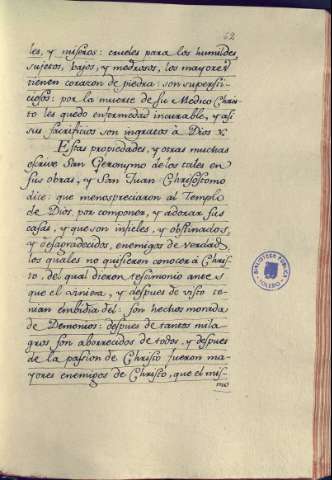 62
les, y miseros: crueles para los humildes
sujetos, bajos, y medrosos, los mayores
tienen corazon de piedra: son supersti-
ciosos: por la muerte de su Medico Chris-
to les quedo enfermedad incurable, y asi
sus sacrificios son ingratos à Dios &.
Estas propiedades, y otras muchas
escrive San Geronymo de los tales en
sus obras, y San Juan Chrisostomo
dice: que menospreciaron al Templo
de Dios por componer, y adorar sus
casas, y que son infieles, y obstinados,
y desagradecidos, enemigos de verdad,
los quales no quisieron conocer à Chris-
to, del qual dieron testimonio antes
que el viniera, y despues de visto te-
nian embidia del: son hechos morada
de Demonios: despues de tantos mila-
gros son aborrecidos de todos, y despues
de la passion de Christo fueron ma-
yores enemigos de Christo, que el mis-
mo
BIBLIOTECA PUBLICA
TOLEDO